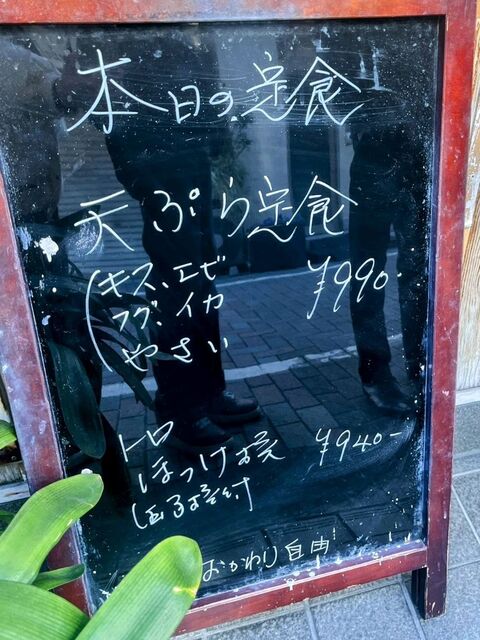 本日の定食
天ぷら定食
(キス、エビ ¥990-
フグ、イカ
やさい
トロ
ほっけ ¥940-
おかわり自由